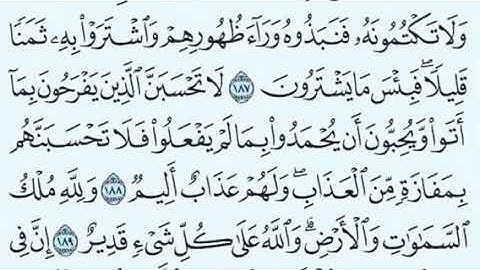 وَلَا تَكْتُمُونَهُۥ فَنَبَذُوهُ وَرَآءَ ظُهُورِهِمْ وَٱشْتَرَوْا۟ بِهِۦ ثَمَنًا
قَلِيلًا ۖ فَبِئْسَ مَا يَشْتَرُونَ ١٨٧ لَا تَحْسَبَنَّ ٱلَّذِينَ يَفْرَحُونَ بِمَآ
أَتَوا۟ وَّيُحِبُّونَ أَن يُحْمَدُوا۟ بِمَا لَمْ يَفْعَلُوا۟ فَلَا تَحْسَبَنَّهُم
بِمَفَازَةٍ مِّنَ ٱلْعَذَابِ ۖ وَلَهُمْ عَذَابٌ أَلِيمٌ ١٨٨ وَلِلَّهِ مُلْكُ
ٱلسَّمَٰوَٰتِ وَٱلْأَرْضِ ۗ وَٱللَّهُ عَلَىٰ كُلِّ شَىْءٍ قَدِيرٌ ١٨٩ إِنَّ فِى